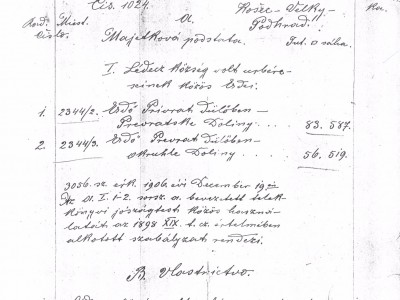 Čís. 1024.
Košec-Velky-
Kat.
Pord. Miest.
číslo
A.
Podhrad.
Majetková podstata.
I. Ledecz község volt urbére-
seinek közös Erdei.
1. 2344/2. Erdő Privrat Dülőben-
Prevratske Doliny . . . 83. 587.
2. 2344/3. Erdő Prevrat Dülőben-
okruhle Doliny . . . 56. 519.
3056. sz. érk. 1906. évi December 19-én
Az A. I. 1-2. sorsz. a. bevezetett telek-
könyvi jószágtest közös haszná-
latát az 1898 XIX. t. cz. értelmében
alkotott szabályzat rendezi.
B. Vlastnictvo.